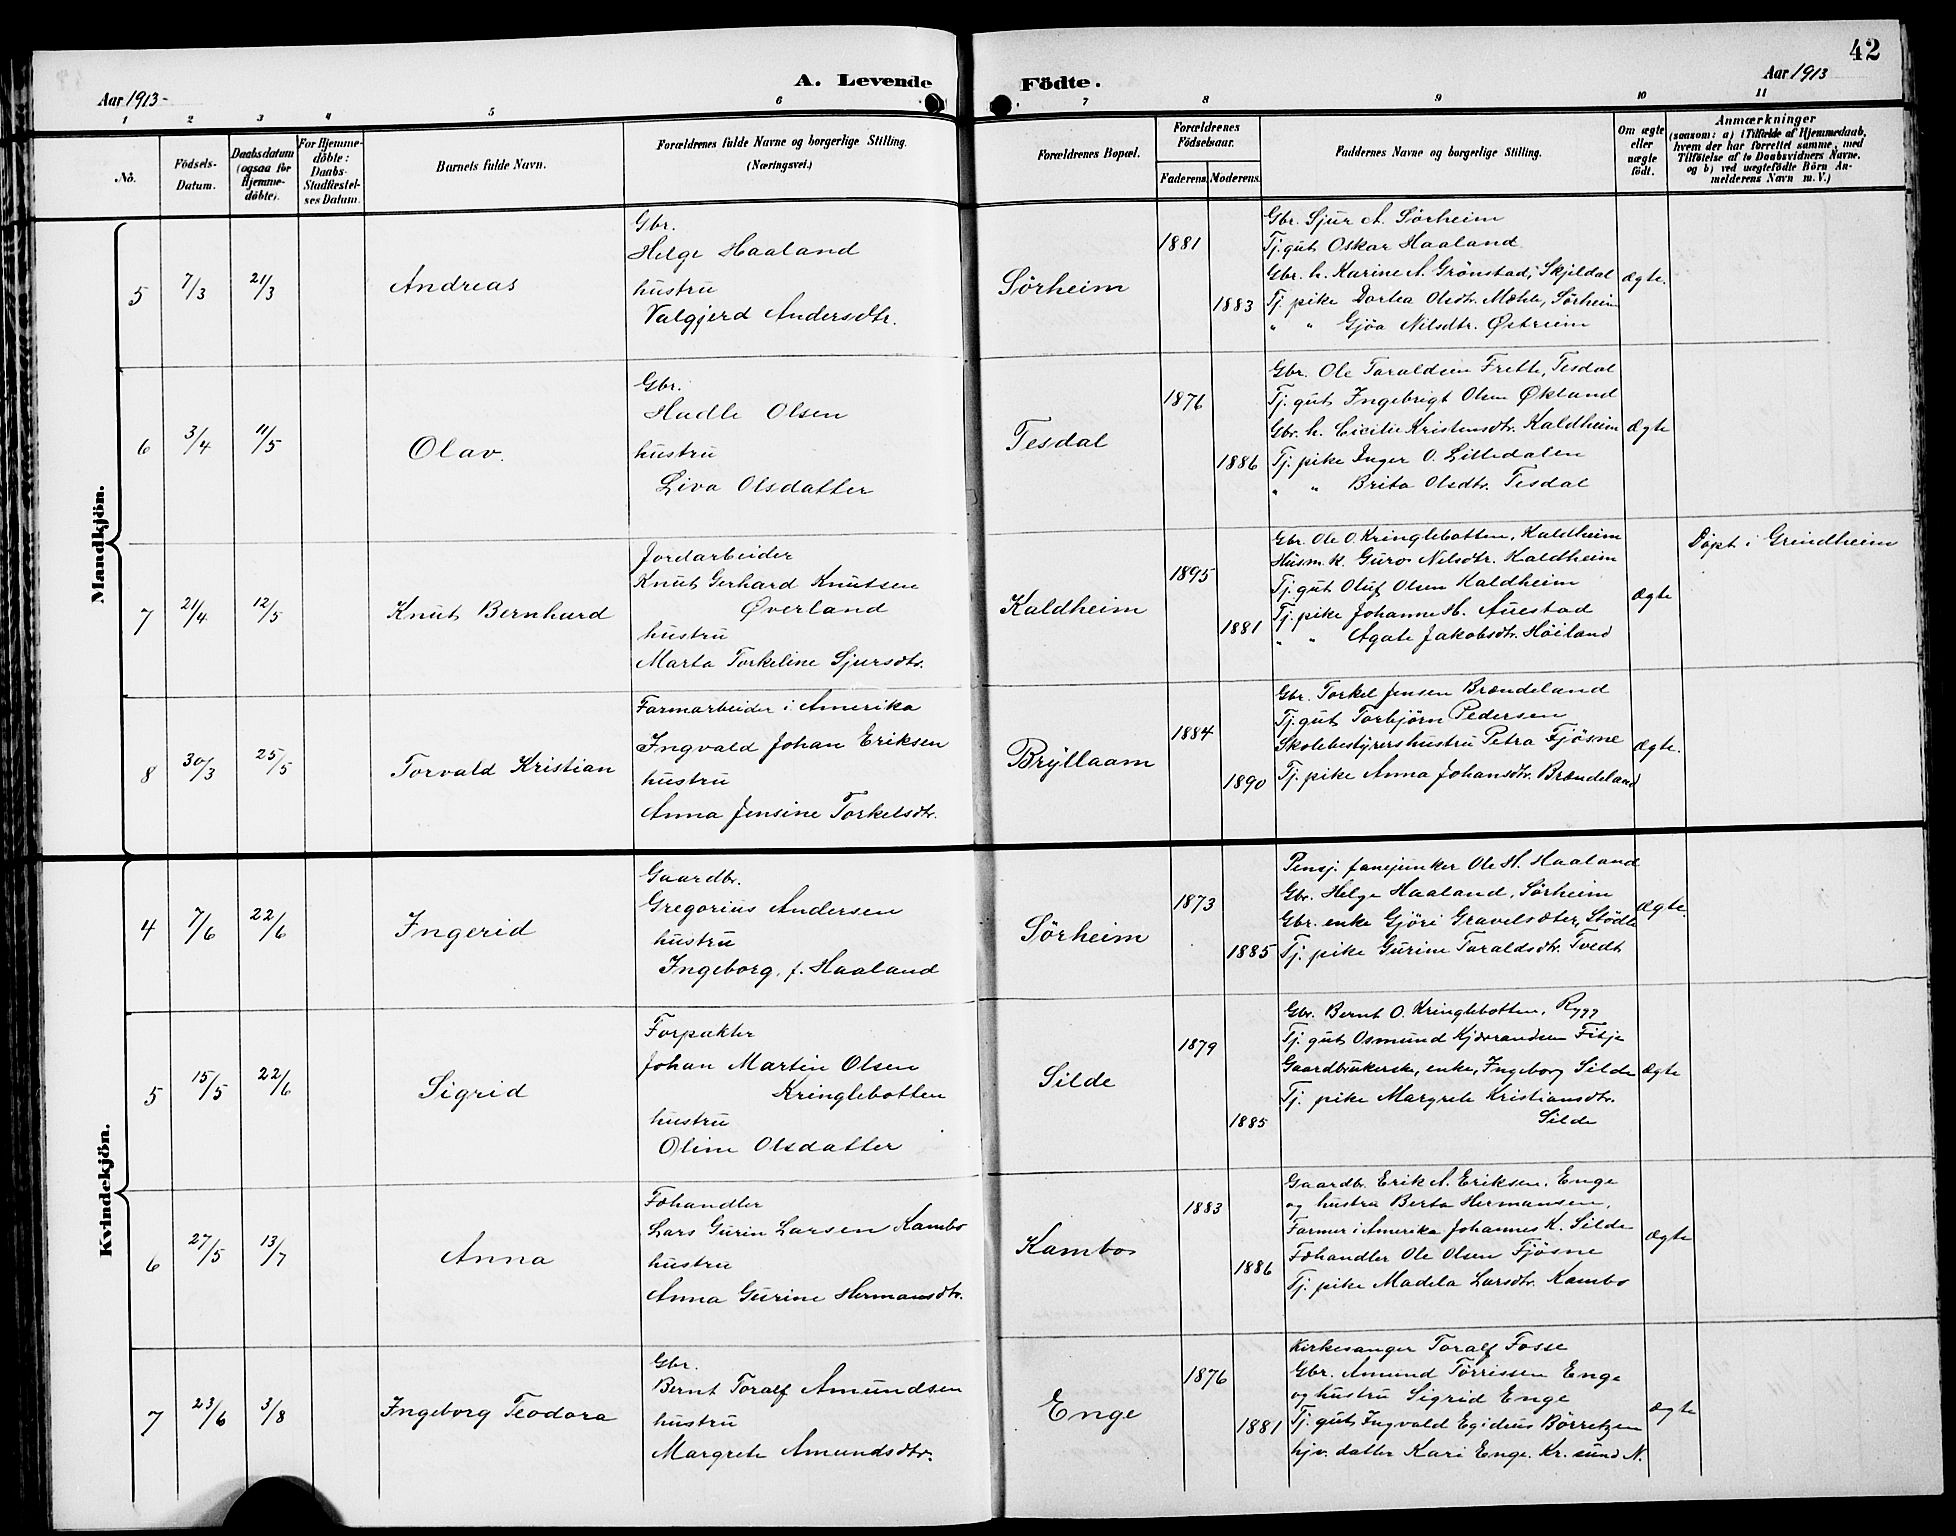 42
A. Levende Födte.
Aar 1913
Aar 1913
1 2 3 4 5 6 7 8 9 10 11
No.
Födsels-Datum.
Daabsdatum (ogsaa for Hjemme-döbte).
For Hjemme-döbte: Daabs-Stadfæstel-ses Datum.
Barnets fulde Navn.
Forældrenes fulde Navne og borgerlige Stilling.
(Næringsvei.)
Forældrenes Bopæl.
Forældrenes Födselsaar.
Faderens. Moderens.
Faddernes Navne og borgerlige Stilling.
Om ægte eller uægte födt.
Anmærkninger
(saasom: a) i Tilfælde af Hjemmedaab, hvem der har forrettet samme, med Tilföielse af to Daabsvidners Navne, og b) ved uægtefödte Börn An-melderens Navn m. V.)
Mandkjön.
5 7/3 21/3 Andreas
Gbr.
Helge Haaland
hustru
Valgjerd Andersdtr.
Sørheim
1881
1883
Gbr. Sjur A. Sørheim
Tj. gut Oskar Haaland
Gbr. h. Karine A. Grønstad, Skjeldal
Tj. pike Dortea Olsdtr. Mæhle, Sørheim
" " Gjøa Nilsdtr. Østreim
Ægte.
6 3/4 11/5 Olav.
Gbr.
Hadle Olsen
hustru
Liva Olsdatter
Tesdal
1876
1886
Gbr. Ole Taraldsen Frette, Tesdal
Tj. gut Ingebrigt Olsen Økland
Gbr. h. Cicilie Kristensdtr. Kaldheim
Tj. pike Inger O. Lilledalen
" " Brita Olsdtr. Tesdal
Ægte
7 21/4 12/5 Knut Bernhard
Jordarbeider
Knut Gerhard Knutsen
Øverland
hustru
Marta Torkeline Sjursdtr.
Kaldheim
1895
1881
Gbr. Ole O. Kringlebotten, Kaldheim
Husm. k. Guro Nilsdtr. Kaldheim
Tj. gut Oluf Olsen Kaldheim
Tj. pike Johanne H. Auestad
" " Agate Jakobsdtr. Høiland
Ægte
Døpt i Grindheim
8 30/3 25/5 Torvald Kristian
Farmarbeider i Amerika
Ingvald Johan Eriksen
hustru
Anna Jensine Torkelsdtr.
Bryllaam
1884
1890
Gbr. Torkel Jensen Brændeland
Tj. gut Torbjørn Pedersen
Skolebestyrershustru Petra Fjøsne
Tj. pike Anna Johansdtr. Brændeland
Ægte.
Kvindekjön.
4 7/6 22/6 Ingerid
Gaardbr.
Gregorius Andersen
hustru
Ingeborg, f. Haaland
Sørheim
1873
1885
Pensj. fanejunker Ole H. Haaland
Gbr. Helge Haaland, Sørheim
Gbr. enke Gjøri Gravelsæter, Stødle
Tj. pike Gurine Taraldsdtr. Tvedt
Ægte.
5 15/5 22/6 Sigrid
Forpakter
Johan Martin Olsen
Kringlebotten
hustru
Oline Olsdatter
Silde
1879
1885
Gbr. Bernt O. Kringlebotten, Rygg
Tj. gut Osmund Kjørandsen Fitje
Gaardbrukerske, enke, Ingeborg Silde
Tj. pike Margrete Kristiansdtr.
Silde
Ægte
6 27/5 13/7 Anna
Fæhandler
Lars Gurin Larsen Kambo
hustru
Anna Gurine Hermansdtr.
Kambo
1883
1886
Gaardb. Erik A. Eriksen, Enge
og hustru Berta Hermansen,
Farmer i Amerika Johannes K. Silde
Fæhandler Ole Olsen Fjøsne
Tj. pike Madela Larsdtr. Kambo
Ægte
7 23/6 3/8 Ingeborg Teodora
Gbr.
Bernt Toralf Amundsen
hustru
Margrete Amundsdtr.
Enge
1876
1881
Kirkesanger Toralf Fosse
Gbr. Amund Tørrissen Enge
og hustru Sigrid Enge
Tj. gut Ingvald Egidius Børretzen
hjv. datter Kari Enge. Kr. sund N.
Ægte